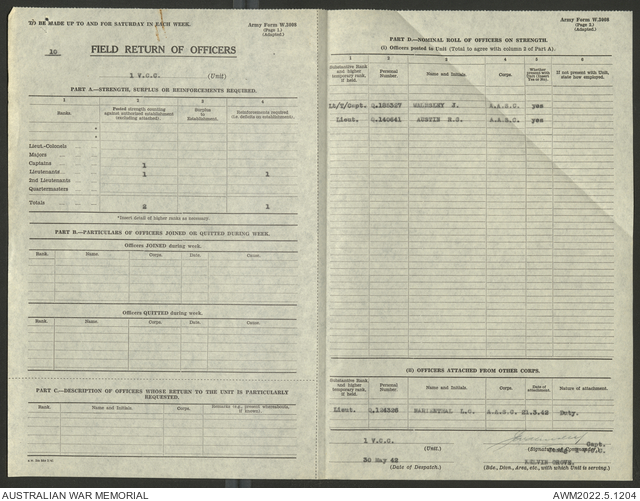 TO BE MADE UP TO AND FOR SATURDAY IN EACH WEEK.
Army Form W.3008
(Page 1.)
(Adapted.)
10 FIELD RETURN OF OFFICERS
1 V.C.C. (Unit)
PART A.—STRENGTH, SURPLUS OR REINFORCEMENTS REQUIRED.
1 2 3 4
Ranks. Posted strength counting against authorised establishment (excluding attached). Surplus to Establishment. Reinforcements required (i.e. deficits on establishment).
*
*
Lieut.-Colonels
Majors
Captains 1
Lieutenants 1 1
2nd Lieutenants
Quartermasters
Totals 2 1
*Insert detail of higher ranks as necessary.
PART B.—PARTICULARS OF OFFICERS JOINED OR QUITTED DURING WEEK.
Officers JOINED during week.
Rank. Name. Corps. Date. Cause.
Officers QUITTED during week.
Rank. Name. Corps. Date. Cause.
PART C.—DESCRIPTION OF OFFICERS WHOSE RETURN TO THE UNIT IS PARTICULARLY REQUESTED.
Rank. Name and Initials. Corps. Remarks (e.g., present whereabouts, if known).
Army Form W.3008
(Page 2.)
(Adapted.)
PART D.—NOMINAL ROLL OF OFFICERS ON STRENGTH.
(i) Officers posted to Unit (Total to agree with column 2 of Part A).
1 2 3 4 5 6
Substantive Rank and higher temporary rank, if held. Personal Number. Name and Initials. Corps. Whether present with Unit (Insert Yes or No). If not present with Unit, show how employed.
J. A.A.S.C. yes
Lieut. Q.140641 AUSTIN R.S. A.A.S.C. yes
(ii) OFFICERS ATTACHED FROM OTHER CORPS.
Substantive Rank and higher temporary rank, if held. Personal Number. Name and Initials. Corps. Date of Attachment. Nature of attachment.
Lieut. L.C. A.A.S.C. 21.3.42 Duty.
1 V.C.C. Capt.
(Unit.) (Signature of Commander.)
30 May 42 KELVIN GROVE.
(Date of Despatch.) (Bde., Divn., Area, etc., with which Unit is serving.)
AUSTRALIAN WAR MEMORIAL AWM2022.5.1204